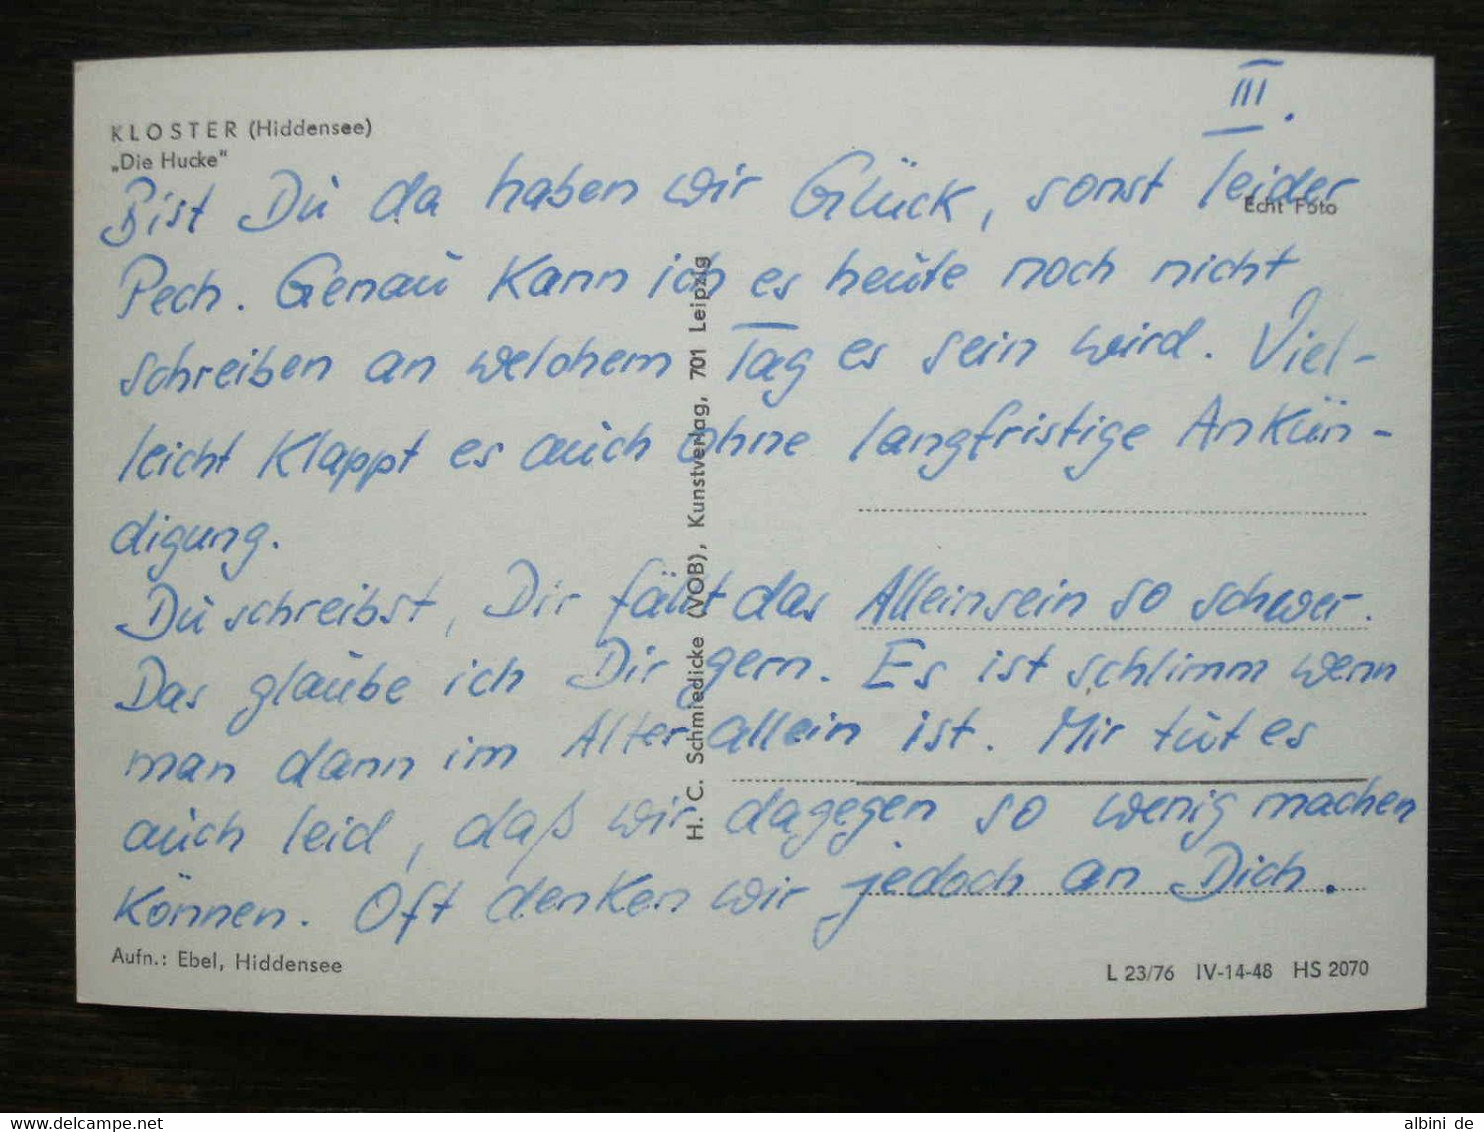 III.
KLOSTER (Hiddensee)
„Die Hucke“
Echt Foto
Bist Du da haben wir Glück, sonst leider
Pech. Genau kann ich es heute noch nicht
schreiben an welchem Tag es sein wird. Viel-
leicht klappt es auch ohne langfristige Ankün-
digung.
Du schreibst, Dir fällt das Alleinsein so schwer.
Das glaube ich Dir gern. Es ist schlimm wenn
man dann im Alter allein ist. Mir tut es
auch leid, daß wir dagegen so wenig machen
können. Oft denken wir jedoch an Dich.
H. C. Schmiedicke (VOB), Kunstverlag, 701 Leipzig
Aufn.: Ebel, Hiddensee
L 23/76 IV-14-48 HS 2070
albini de